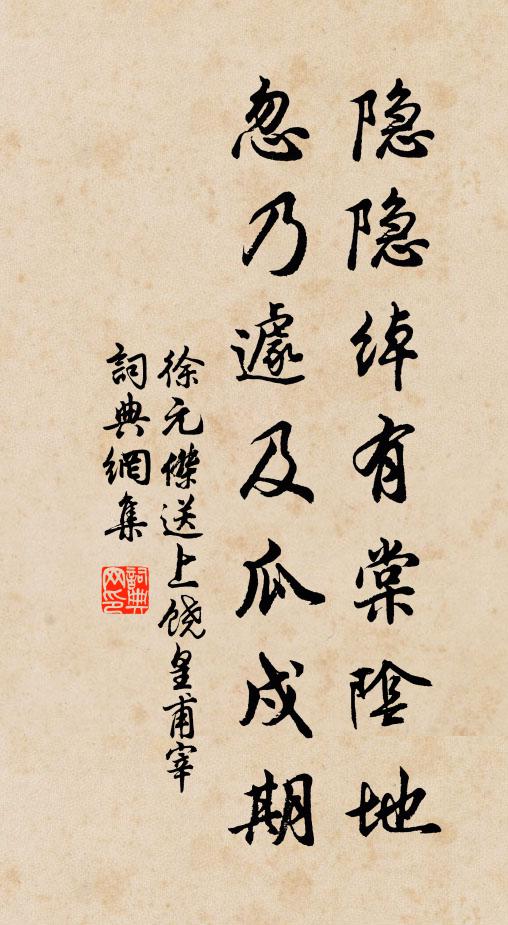 隐隐绰有棠陰地
忽乃遽及瓜戍期
徐元傑送上饶皇甫宰
詞典網集
詞典网印